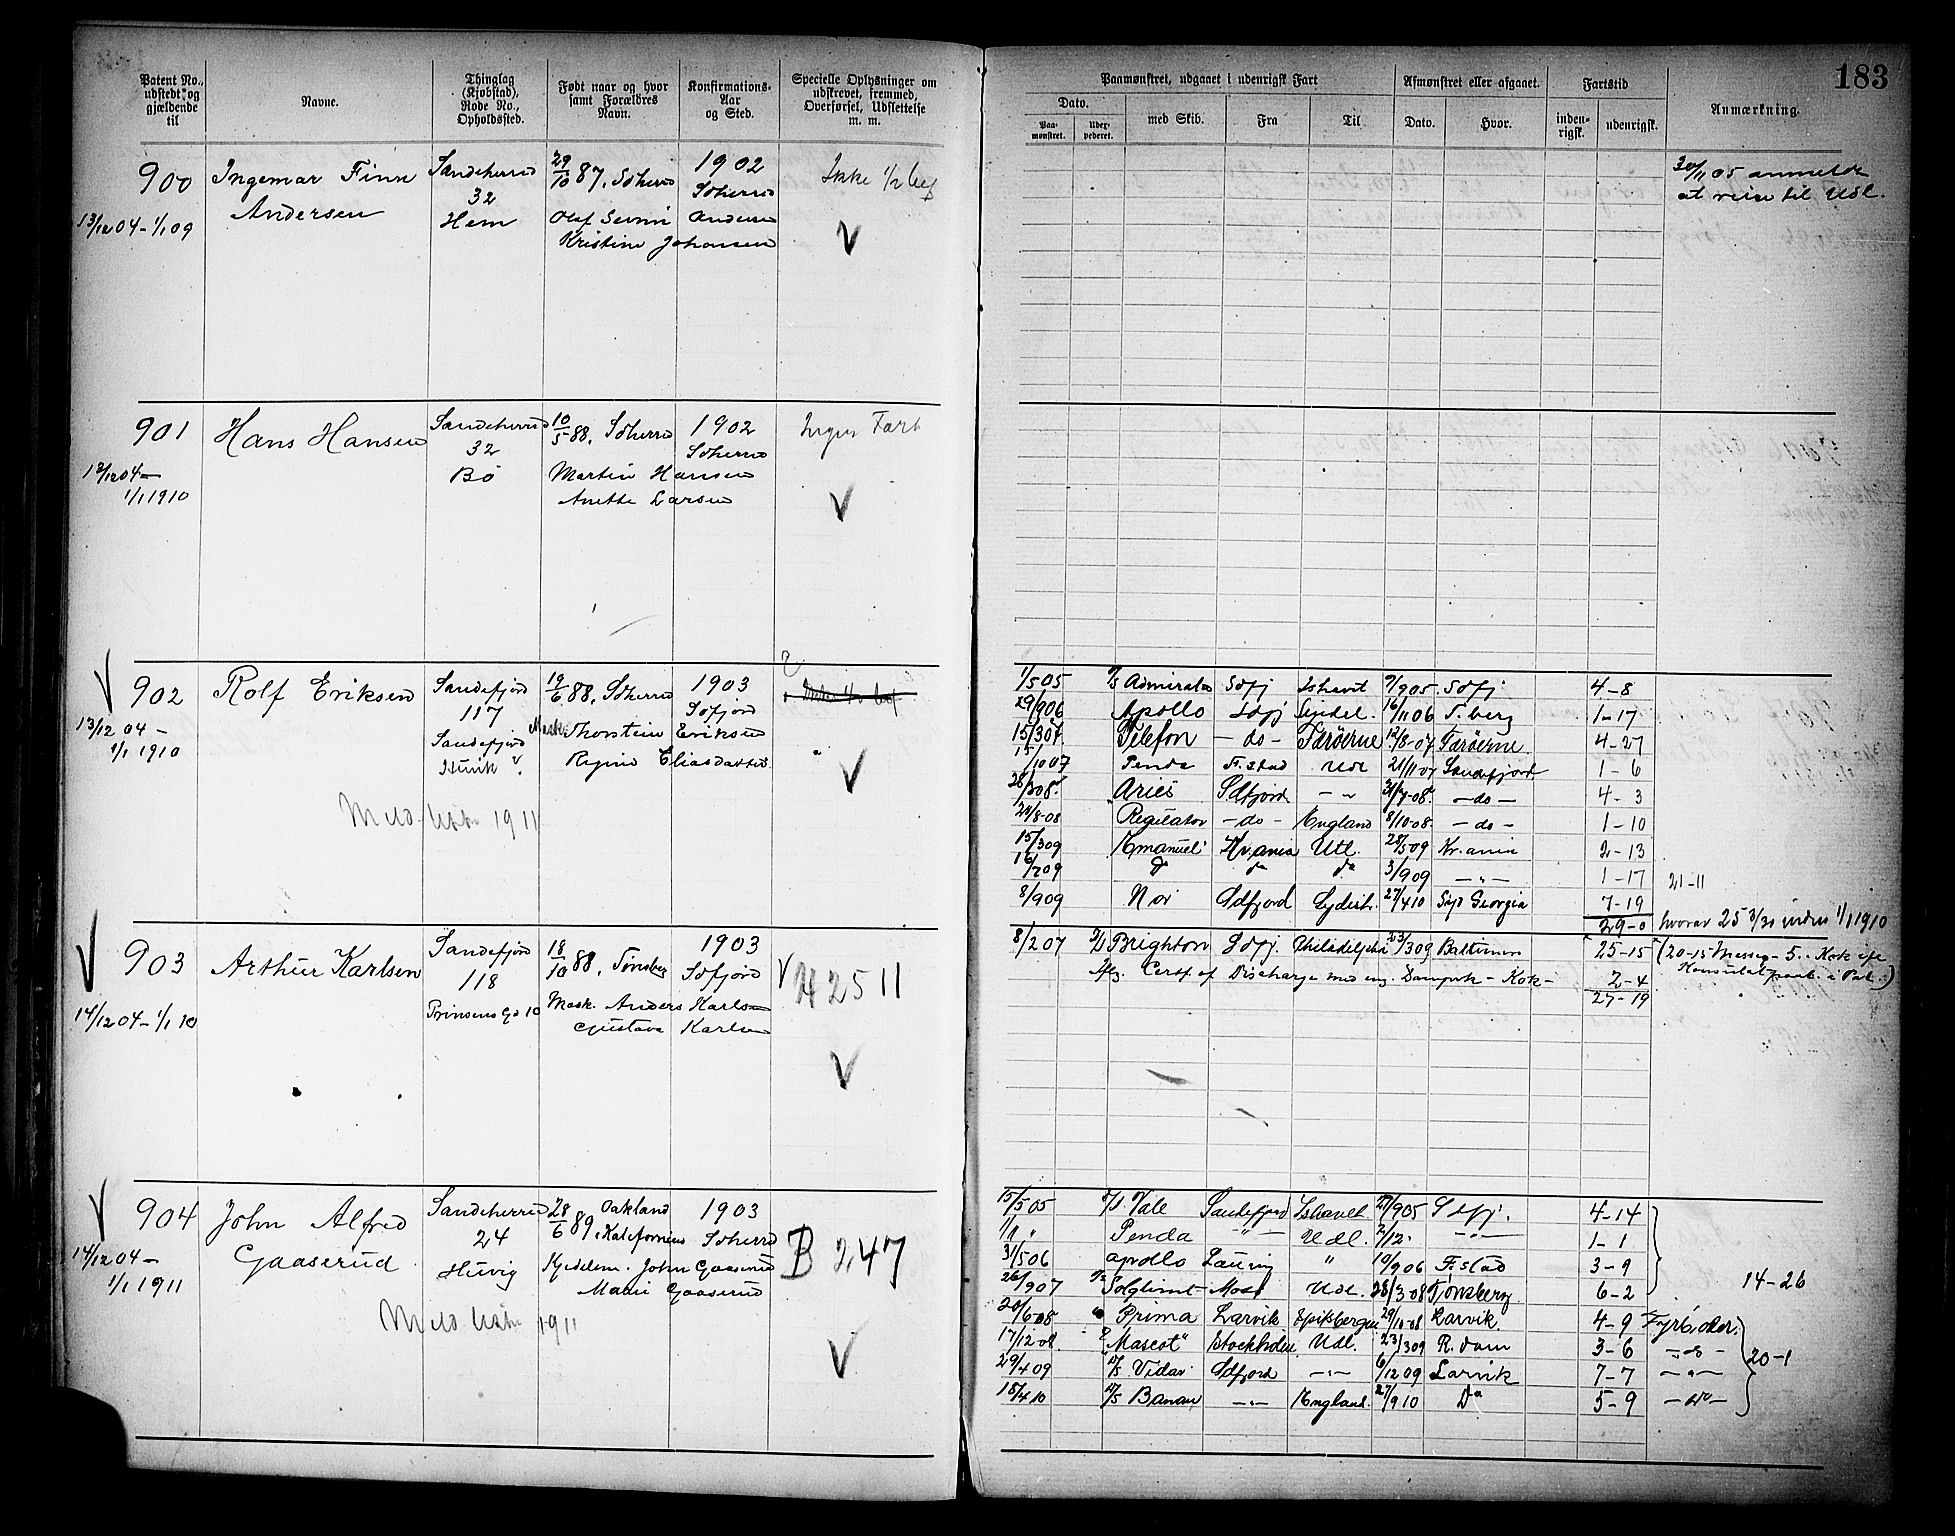 183
Patent No., udstedt og gjældende til
Navne.
Thinglag (Kjøbstad), Rode No., Opholdssted.
Født naar og hvor samt Forældres Navn.
Konfirmations-Aar og Sted.
Specielle Oplysninger om udskrevet, fremmed, Overførsel, Udslettelse m. m.
Paamønstret, udgaaet i udenrigsk Fart
Afmønstret eller afgaaet.
Fartstid
Anmærkning.
Dato.
Paa-mønstret.
med Skib.
Fra
Til
Dato.
Hvor.
inden-rigsk.
udenrigsk.
900 Ingemar Finn Sandeherred 29/10 87, Sdherred 1902 Ikke 1/2 bef
Andersen 32 Sdherred
13/12 04 - 1/1 09 Hem Olaf Andersen
Kristine Johansen
V
30/11 05 anmeldt
at reise til Udl.
901 Hans Hansen Sandeherred 10/5 88, Sdherred 1902 Ingen Fart
32 Sdherred
13/12 04 - Bø Martin Hansen
1/1 1910 Anette Larsen
V
V 902 Rolf Eriksen Sandefjord 19/6 88, Sdherred 1903
117 Sdfjord
13/12 04 - Sandefjord Mask. Thorstein Eriksen
1/1 1910 Huvik Regine Eliasdatter
V
1911
1/5 05 Admiralen Sdfj Ishavet 9/9 05 Sdfj 4-8
29/9 06 Apollo Sdfj Sydish. 16/11 06 T.berg 1-17
15/3 07 Telefon - do - Færöerne 12/8-07 Færöerne 4-27
15/10 07 Penda F.stad Udl 21/11 07 Sandefjord 1-6
28/3 08 Aries Sdfjord 31/7-08 - do - 4-3
24/8-08 Regulator - do - England 8/10-08 - do - 1-10
15/3 09 Emanuel Kr.ania Utl. 28/5 09 Kr.ania 2-13
16/7 09 Do do do 3/9 09 - " - 1-17 21-11
8/9 09 Nor Sdfjord Sydish. 27/4 10 Syd Georgia 7-19
29-0 hvorav 25 3/30 inden 1/1 1910
V 903 Arthur Karlsen Sandefjord 18/10 88, Tønsberg 1903 V H 2511
118 Sdfjord
14/12 04 - 1/1 10 Prinsens Gd 10 Mask. Anders Karlsen
Gustava Karlsen
V
8/2 07 Brighton Sdfj. Philadelphia 23/3 09 Baltimore 25-15 (20-15 Messeg - 5.. Kok
Certf of Discharge med eng. Dampsk - Kok - 2-4
27-19
V 904 John Alfred Sandeherred 28/6 89, Oakland 1903 B 247
Gaaserud 24 Kalefornien Sdherred
14/12 04 - Huvig John Gaaserud
1/1 1911 Marie Gaaserud
1911
V
15/5 05 Vale Sandefjord Ishavet 27/9 05 Sdfj. 4-14
1/11 " Penda - " - Udl. 2/12 - " - 1-1
31/5 06 Apollo Lauvig " 10/9 06 F.stad 3-9
26/9 07 Solglimt Moss Udl. 28/3 08 Tjønsberg 6-2 14-26
20/6-08 Prima Larvik Spitsbergen 29/10-08 Larvik. 4-9 Fyrböder
17/12 08 "Mascot" Stockholm Udl. 23/3 09 R.dam 3-6 - do - 20-1
29/4 09 Vidar Sdfjord - " - 6/12 09 Larvik 7-7 - " -
18/4 10 Banan - " - England. 27/9 10 Do 5-9 - do -